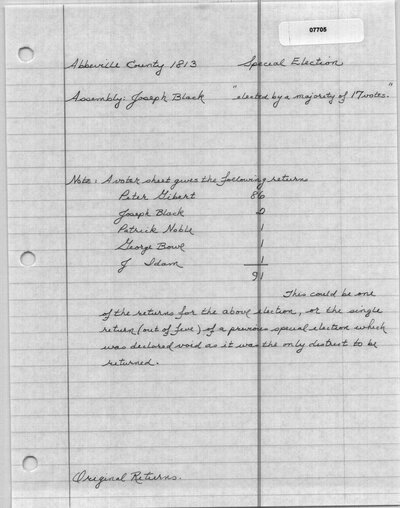 07705
Abbeville County 1813 Special Election
Assembly: Joseph Black "elected by a majority of 17 votes."
Note: A voter sheet gives the following returns
Peter Gibert 86
Joseph Black 2
Patrick Noble 1
George Bowe 1
J Idam 1
91
This could be one
of the returns for the above election, or the single
return (out of five) of a previous special election which
was declared void as it was the only distrest to be
returned.
Original Returns.